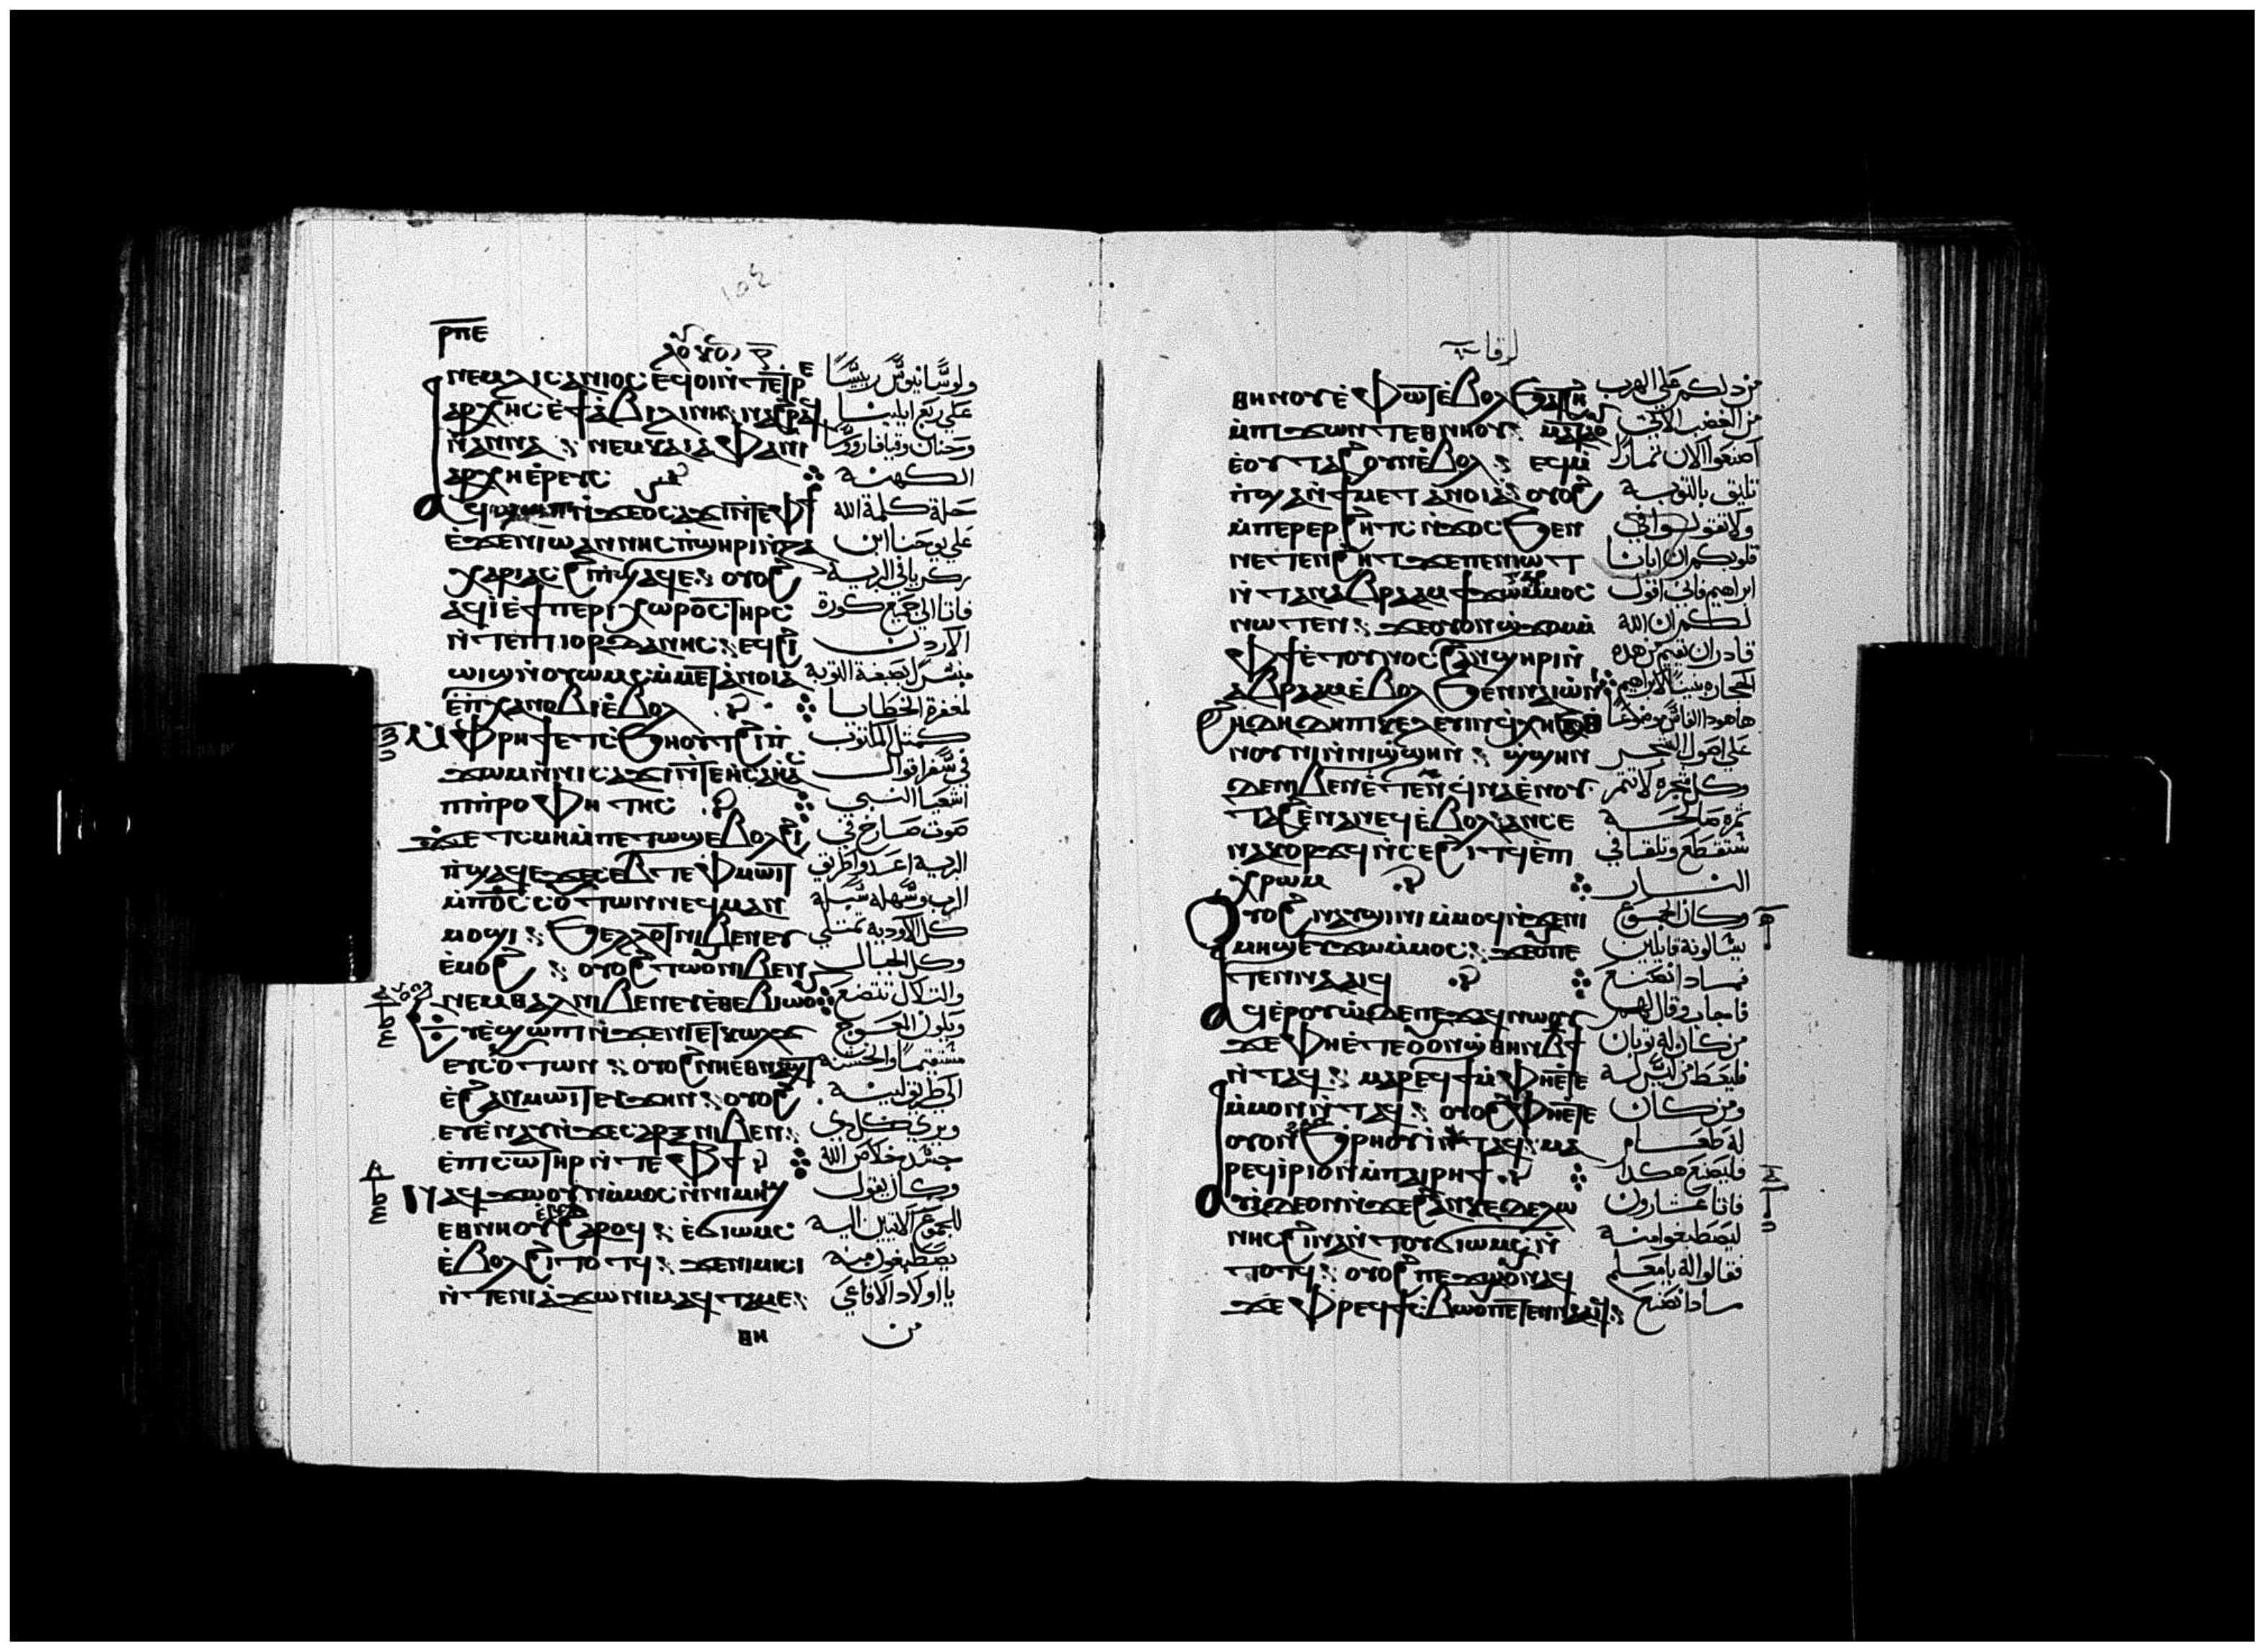 ⲣⲡⲉ
ⲛⲉⲙⲗⲓⲥⲁⲛⲓⲟⲥ ⲉϥⲟⲓⲛ̀ⲧⲉⲧⲣⲉ
ⲁⲣⲭⲏⲥ ⲉ̀ϯⲁⲃⲓⲗⲓⲛⲏ ⲛⲁϩⲣⲁϥ
ⲛ̀ⲁⲛⲛⲁ ⲛⲉⲙⲕⲁⲓⲁⲫⲁ ⲛⲓ
ⲁⲣⲭⲏⲉ̀ⲣⲉⲩⲥ
ⲁϥϣⲱⲡⲓ ⲛ̀ϫⲉⲟⲩⲥⲁϫⲓ ⲛ̀ⲧⲉⲫϯ
ⲉ̀ϫⲉⲛ ⲓⲱⲁⲛⲛⲏⲥ ⲡ̀ϣⲏⲣⲓ ⲛ̀ⲍⲁ
ⲭⲁⲣⲓⲁⲥ ϩⲓⲡ̀ϣⲁϥⲉ ⲟⲩⲟϩ
ⲁϥⲓ̀ ⲉ̀ϯⲡⲉⲣⲓⲭⲱⲣⲟⲥ ⲧⲏⲣⲥ
ⲛ̀ⲧⲉⲡⲓⲓⲟⲣⲇⲁⲛⲏⲥ ⲉϥϩⲓ
ⲱⲓϣ ⲛ̀ⲟⲩⲱⲙⲥ ⲙ̀ⲙⲉⲧⲁⲛⲟⲓⲁ
ⲉ̀ⲡⲭⲁⲛⲟⲃⲓ ⲉ̀ⲃⲟⲗ
ⲙ̀ⲫⲣⲏϯ ⲉⲧⲥϧⲏⲟⲩⲧ ϩⲓⲡ̀
ϫⲱⲙ ⲛ̀ⲛⲓⲥⲁϫⲓ ⲛ̀ⲧⲉⲏⲥⲁⲏⲁⲥ
ⲡⲓⲡ̀ⲣⲟⲫⲏⲧⲏⲥ
ϫⲉ ⲧ̀ⲥⲙⲏ ⲙ̀ⲡⲉⲧⲱϣ ⲉ̀ⲃⲟⲗ ϩⲓ
ⲡ̀ϣⲁϥⲉ ϫⲉ ⲥⲉⲃⲧⲉ ⲫⲙⲱⲓⲧ
ⲙ̀ⲡϭⲥ ⲥⲟⲩⲧⲱⲛ ⲛⲉϥⲙⲁⲛ
ⲙⲟϣⲓ ϧⲉⲗⲗⲟⲧ ⲛⲓⲃⲉⲛ ⲉⲩ
ⲉ̀ⲙⲟϩ ⲟⲩⲟϩ ⲧⲱⲟⲩ ⲛⲓⲃⲉⲛ
ⲛⲉⲙ ⲑⲁⲗ ⲛⲓⲃⲉⲛ ⲉⲩⲉ̀ⲑⲉⲃⲓⲱⲟⲩ
ⲉⲩⲉ̀ϣⲱⲡⲓ ⲛ̀ϫⲉⲛⲏⲉⲧⲕⲱⲗϫ
ⲉⲩⲥⲟⲩⲧⲱⲛ ⲟⲩⲟϩ ⲛⲏⲉⲑⲛⲁϣⲧ
ⲉ̀ϩⲁⲛⲙⲱⲓⲧ ⲉⲩϫⲏⲛ ⲟⲩⲟϩ
ⲉⲩⲉ̀ⲛⲁⲩ ⲛ̀ϫⲉⲥⲁⲣⲝ ⲛⲓⲃⲉⲛ
ⲉ̀ⲡⲓⲥⲱⲧⲏⲣ ⲛ̀ⲧⲉⲫϯ
ⲛⲁϥϫⲱ ⲟⲩⲛ ⲙ̀ⲙⲟⲥ ⲛ̀ⲛⲓⲙⲏϣ
ⲉⲑⲛⲏⲟⲩ ϩⲁⲣⲟϥ ⲉ̀ϭⲓⲱⲙⲥ
ⲉ̀ⲃⲟⲗϩⲓⲧⲟⲧϥ ϫⲉ ⲛⲓⲙⲓⲥⲓ
ⲛ̀ⲧⲉⲛⲓⲁϫⲱ ⲛⲓⲙ ⲁϥⲧⲁⲙⲉ
ⲑⲏ
ولوسانيوس رييسا
علي ربع ابلينا
وحنان وقيافا روسا
الكهنة
حلة كلمة الله
علي يوحنا ابن
زكريا في البرية
فاتا الي جميع كورة
الاردن
مبشرا بصبغة التوبة
لمغفرة الخطايا
كمثل المكتوب
في سفر اقوال
اشعيا النبي
صوت صارخ في
البرية اعدوا طريق
الرب وسهلوا سبله
كل الاودية تمتلي
وكل الجبال
والتلال تتضع
ويكون العسوج
مستقيما والخشنة
الي طريق لينة
ويري كل ذي
جسد خلاص الله
وكان يقول
للجموع الاتيين اليه
يصطبغون منه
يا اولاد الافاعي
من
لوقا
ⲑⲏⲛⲟⲩ ⲉ̀ⲫⲱⲧ ⲉ̀ⲃⲟⲗ ϧⲁⲧϩⲏ
ⲙ̀ⲡⲓϫⲱⲛⲧ ⲉⲑⲛⲏⲟⲩ ⲙⲁⲣⲟ
ⲉ̀ⲟⲩⲧⲁϩ ⲟⲩⲛ ⲉ̀ⲃⲟⲗ ⲉϥⲙ̀
ⲡ̀ϣⲁ ⲛ̀ϯⲙⲉⲧⲁⲛⲟⲓⲁ ⲟⲩⲟϩ
ⲙ̀ⲡⲉⲣⲉⲣϩⲏⲧⲥ ⲛ̀ϫⲟⲥ ϧⲉⲛ
ⲛⲉⲧⲉⲛϩⲏⲧ ϫⲉ ⲡⲉⲛⲓⲱⲧ
ⲡⲉ ⲁⲃⲣⲁⲁⲙ ϯϫⲱ ⲅⲁⲣ ⲙ̀ⲙⲟⲥ
ⲛⲱⲧⲉⲛ ϫⲉ ⲟⲩⲟⲛ ϣϫⲟⲙ ⲙ̀
ⲫϯ ⲉ̀ⲧⲟⲩⲛⲟⲥ ϩⲁⲛϣⲏⲣⲓ ⲛ̀
ⲁⲃⲣⲁⲁⲙ ⲉ̀ⲃⲟⲗ ϧⲉⲛ ⲛⲁⲓⲱⲛⲓ
ϩⲏⲇⲏ ⲇⲏ ⲡⲓⲕⲉⲗⲉⲃⲓⲛ ϥⲭⲏ ϧⲁ ⲑ
ⲛⲟⲩⲛⲓ ⲛ̀ⲛⲓϣ̀ϣⲏⲛ ϣ̀ϣⲏⲛ
ⲇⲉ ⲛⲓⲃⲉⲛ ⲉ̀ⲧⲉⲛϥ̀ⲛⲁⲉ̀ⲛⲟⲩ
ⲧⲁϩ ⲉ̀ⲛⲁⲛⲉϥ ⲉ̀ⲃⲟⲗ ⲁⲛ ⲥⲉ
ⲛⲁⲕⲟⲣϫϥ ⲛ̀ⲥⲉϩⲓⲧϥ ⲉ̀ⲡⲓ
ⲭ̀ⲣⲱⲙ
ⲟⲩⲟϩ ⲛⲁⲩϣⲓⲛⲓ ⲙ̀ⲙⲟϥ ⲛ̀ϫⲉⲛⲓ
ⲙⲏϣ ⲉⲩϫⲱ ⲙ̀ⲙⲟⲥ ϫⲉ ⲟⲩ ⲡⲉ
ⲧⲉⲛⲛⲁⲁⲓϥ
ⲁϥⲉ̀ⲣⲟⲩⲱ̀ ⲇⲉ ⲡⲉϫⲁϥ ⲛⲱⲟⲩ
ϫⲉ ⲫⲏⲉ̀ⲧⲉⲟⲩⲟⲛ ϣ̀ⲑⲏⲛ ⲃϯ
ⲛ̀ⲧⲁϥ ⲙⲁⲣⲉϥϯ ⲙ̀ⲫⲏⲉ̀ⲧⲉ
ⲙ̀ⲙⲟⲛ ⲛ̀ⲧⲁϥ ⲟⲩⲟϩ ⲫⲏⲉ̀ⲧⲉ
ⲟⲩⲟⲛ ϧ̀ⲣⲏⲟⲩⲓ̀ ⲛ̀ⲧⲁϥ ⲙⲁ
ⲣⲉϥⲓ̀ⲣⲓ ⲟⲛ ⲙ̀ⲡⲁⲓⲣⲏϯ
ⲁⲩⲓ̀ ⲇⲉ ⲟⲛ ⲛ̀ϫⲉϩⲁⲛⲕⲉⲧⲉⲗⲱ
ⲛⲏⲥ ϩⲓⲛⲁ ⲛ̀ⲧⲟⲩϭⲓⲱⲙⲥ ⲛ̀
ⲧⲟⲧϥ ⲟⲩⲟϩ ⲡⲉϫⲱⲟⲩ ⲛⲁϥ
ϫⲉ ⲫⲣⲉϥϯⲥⲃⲱ ⲟⲩ ⲡⲉⲧⲉⲛⲛⲁⲁⲓϥ
من دلكم علي الهرب
من الغضب الاتي
اصنعوا الان ثمارا
تليق بالتوبة
ولا تقولوا في
قلوبكم ان ابانا
ابراهيم فاني اقول
لكم ان الله
قادر ان يقيم من هذه
الحجارة بنينا لابراهيم
ها هوذا الفاس موضوعا
علي اصول الشجر
وكل شجرة لا تثمر
ثمرة صالحة
ستقطع وتلقا في
النار
وكان الجموع
يسالونه قايلين
فماذا نصنع
فاجاب وقال لهم
من كان له ثوبان
فليعط من ليس له
ومن كان
له طعام
فليصنع هكذا
فاتا عشارون
ليصطبغوا منه
فقالوا له يا معلم
ماذا نصنع